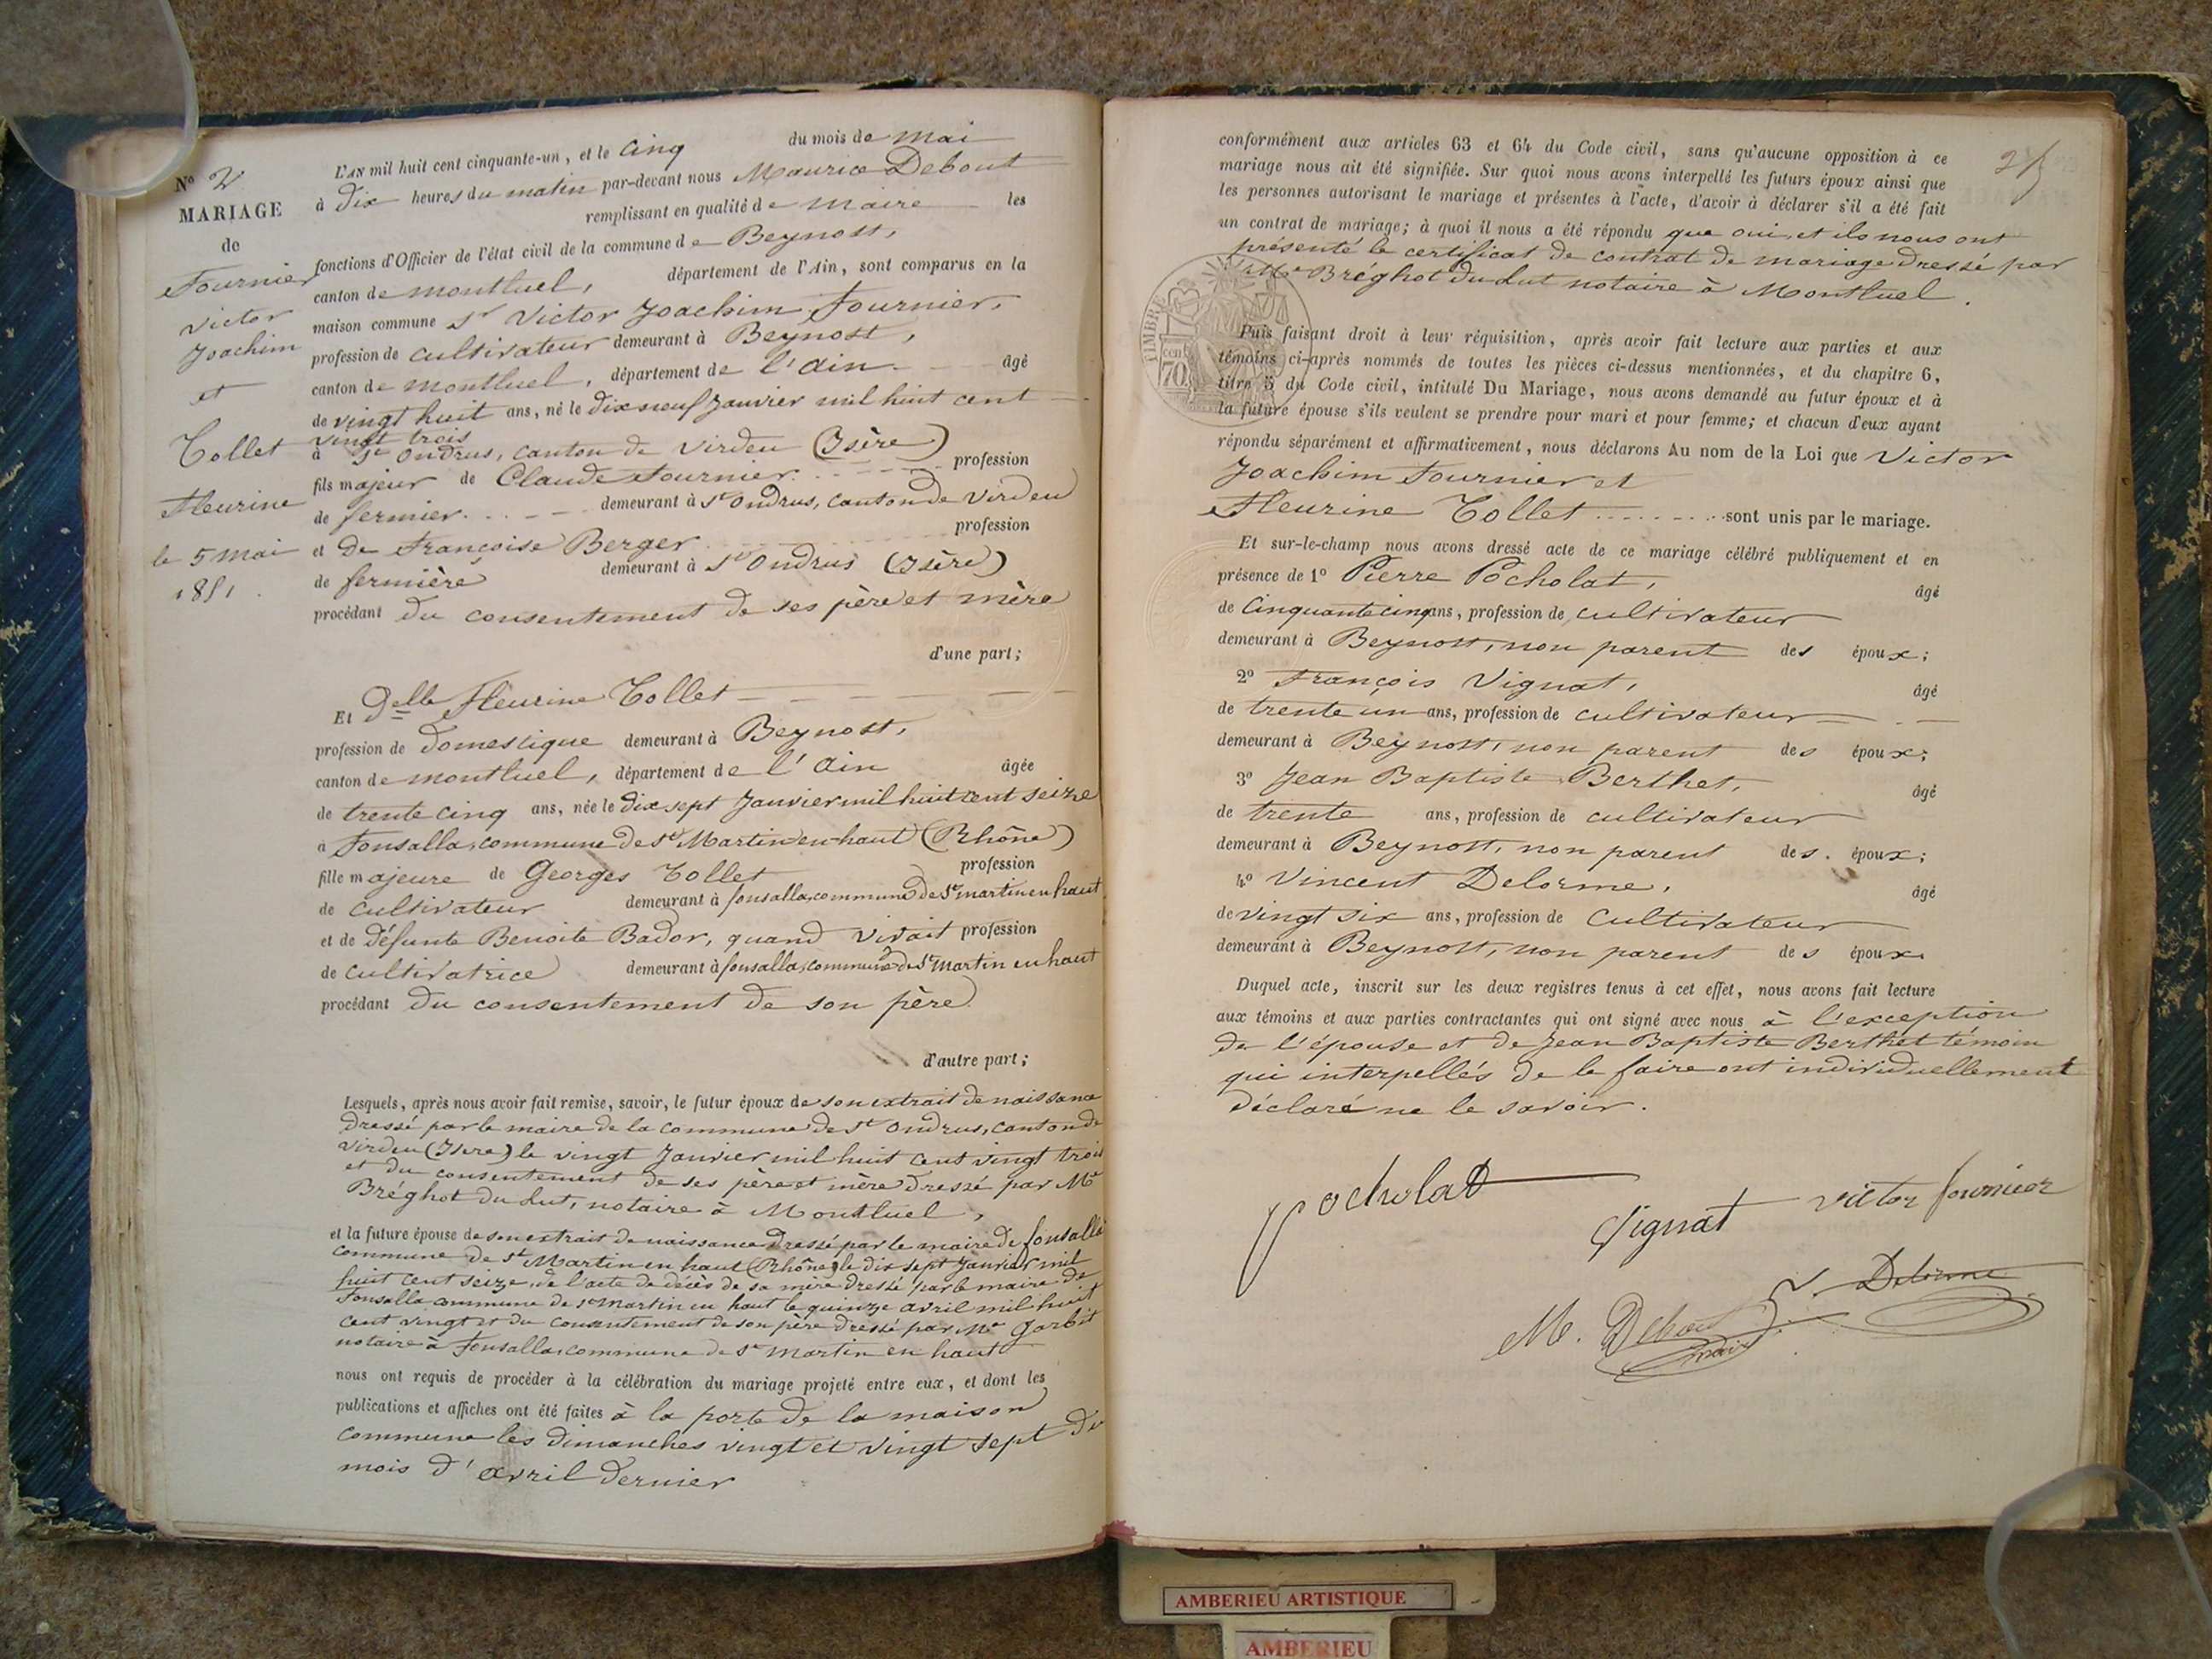 N° 2
MARIAGE
de
Fournier
Victor
Joachim
et
Tollet
Fleurine
le 5 mai
1851.
L'AN mil huit cent cinquante-un, et le Cinq du mois de mai
à Dix heures du matin par-devant nous Maurice Debout
remplissant en qualité de maire les
fonctions d'Officier de l'état civil de la commune de Beynost,
canton de montluel, département de l'Ain, sont comparus en la
maison commune Sr Victor Joachim Fournier,
profession de cultivateur demeurant à Beynost,
canton de montluel, département de l'ain âgé
de vingt huit ans, né le Dix neuf Janvier mil huit cent
vingt trois
à St Ondrus, canton de Virdeu (Isère)
fils majeur de Claude Fournier profession
de fermier demeurant à St Ondrus, canton de Virdeu
et de Françoise Berger profession
de fermière demeurant à St Ondrus (Isère)
procédant du consentement de ses père et mère
d'une part;
Et Delle Fleurine Tollet
profession de Domestique demeurant à Beynost,
canton de montluel, département de l'ain âgée
de trente cinq ans, née le Dix sept Janvier mil huit cent seize
à Fonsalla, commune de St Martin en-haut (Rhône)
fille majeure de Georges Tollet profession
de cultivateur demeurant à fonsalla, commune de St martin en haut
et de Défunte Benoite Bador, quand vivait profession
de cultivatrice demeurant à fonsalla, commune de St Martin en haut
procédant du consentement de son père
d'autre part;
Lesquels, après nous avoir fait remise, savoir, le futur époux de son extrait de naissance
dressé par le maire de la commune de St Ondrus, canton de
Virdeu (Isère) le vingt Janvier mil huit cent vingt trois
et du consentement de ses père et mère dressé par Me
Bréghot du Lut, notaire à Montluel,
et la future épouse de son extrait de naissance dressé par le maire de fonsalla
commune de St Martin en haut (Rhône) le dix sept Janvier mil
huit cent seize, de l'acte de décès de sa mère dressé par le maire de
Fonsalla commune de St Martin en haut le quinze avril mil huit
cent vingt et du consentement de son père dressé par Me
notaire à Fonsalla, commune de St Martin en haut
nous ont requis de procéder à la célébration du mariage projeté entre eux, et dont les
publications et affiches ont été faites à la porte de la maison
commune les dimanches vingt et vingt sept du
mois d'avril dernier
25
conformément aux articles 63 et 64 du Code civil, sans qu'aucune opposition à ce
mariage nous ait été signifiée. Sur quoi nous avons interpellé les futurs époux ainsi que
les personnes autorisant le mariage et présentes à l'acte, d'avoir à déclarer s'il a été fait
un contrat de mariage; à quoi il nous a été répondu que oui, et ils nous ont
présenté le certificat de contrat de mariage dressé par
Me Bréghot du Lut notaire à Montluel.
TIMBRE
cent
70
Puis faisant droit à leur réquisition, après avoir fait lecture aux parties et aux
témoins ci-après nommés de toutes les pièces ci-dessus mentionnées, et du chapitre 6,
titre 5 du Code civil, intitulé Du Mariage, nous avons demandé au futur époux et à
la future épouse s'ils veulent se prendre pour mari et pour femme; et chacun d'eux ayant
répondu séparément et affirmativement, nous déclarons Au nom de la Loi que Victor
Joachim Fournier et
Fleurine Tollet sont unis par le mariage.
Et sur-le-champ nous avons dressé acte de ce mariage célébré publiquement et en
présence de 1° Pierre Pocholat, âgé
de Cinquante cinq ans, profession de cultivateur
demeurant à Beynost, non parent des époux;
2° François Vignat, âgé
de trente un ans, profession de cultivateur
demeurant à Beynost, non parent des époux;
3° Jean Baptiste Berthet, âgé
de trente ans, profession de cultivateur
demeurant à Beynost, non parent des époux;
4° Vincent Delorme, âgé
de vingt six ans, profession de cultivateur
demeurant à Beynost, non parent des époux.
Duquel acte, inscrit sur les deux registres tenus à cet effet, nous avons fait lecture
aux témoins et aux parties contractantes qui ont signé avec nous à l'exception
de l'épouse et de Jean Baptiste Berthet témoin
qui interpellés de le faire ont individuellement
déclaré ne le savoir.
Pocholat
Vignat
victor fournier
V. Delorme
M. Debout
maire
AMBERIEU ARTISTIQUE
AMBERIEU